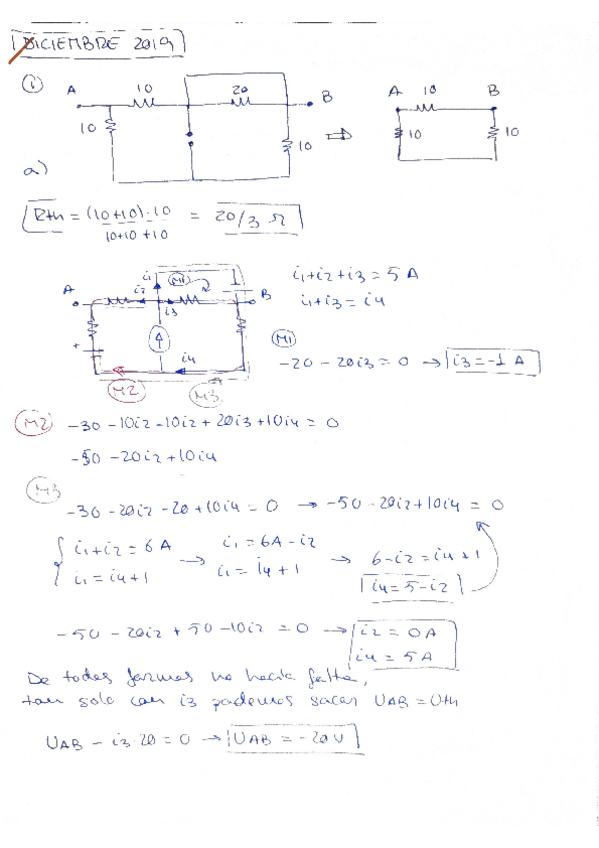 DICIEMBRE 2019
1
A 10 20 B A 10 B
10 10 ⇒ 10 10
a)
Rth = (10+10)·10 / 10+10+10 = 20/3 Ω
i1 M1
A i2 i3 B
i1+i2+i3 = 5 A
i1+i3 = i4
+ i4
M1
-20 - 20i3 = 0 → i3 = -1 A
M2 M3
M2 -30 - 10i2 - 10i2 + 20i3 + 10i4 = 0
-50 - 20i2 + 10i4
M3
-30 - 20i2 - 20 + 10i4 = 0 → -50 - 20i2 + 10i4 = 0
{ i1+i2 = 6 A → i1 = 6A - i2 → 6 - i2 = i4 + 1
i1 = i4+1 i1 = i4 + 1 i4 = 5 - i2
-50 - 20i2 + 50 - 10i2 = 0 → i2 = 0A
i4 = 5A
De todas formas no hacía falta,
tan solo con i3 podemos sacar UAB = Uth
UAB - i3·20 = 0 → UAB = -20V